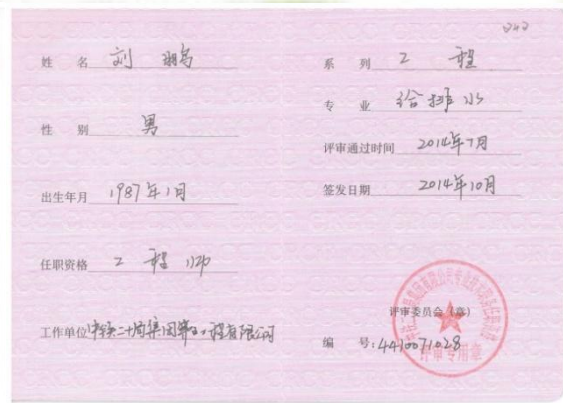 242
姓 名 刘 鹏
性 别 男
出生年月 1987年1月
任职资格 工 程 师
工作单位 中铁二十局集团第 工程有限公司
系 列 工 程
专 业 给排水
评审通过时间 2014年7月
签发日期 2014年10月
评审委员会（章）
编 号：4410071028
评审专用章